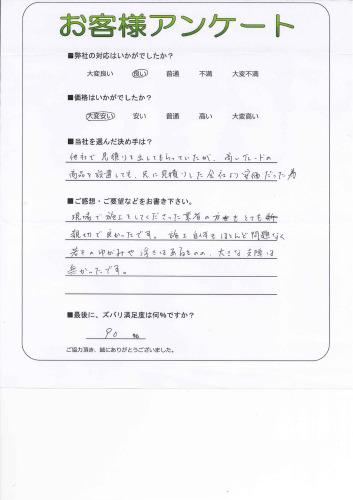 お客様アンケート
■弊社の対応はいかがでしたか?
大変良い 良い 普通 不満 大変不満
■価格はいかがでしたか?
大変安い 安い 普通 高い 大変高い
■当社を選んだ決め手は?
他社で見積りを出してもらっていたが、高いグレードの
商品を設置しても、先に見積りした会社より安価だった為
■ご感想・ご要望などをお書き下さい。
現場で施工をしてくださった業者の方もとても
親切で良かったです。施工自体もほとんど問題なく
若干のゆがみや浮きはあるものの、大きな支障は
無かったです。
■最後に、ズバリ満足度は何%ですか?
90 %
ご協力頂き、誠にありがとうございました。